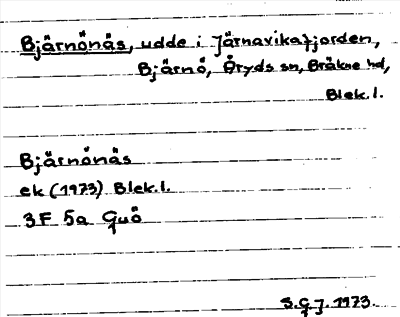 Bjärnönäs, udde i Järnavikafjorden,
Bjärnö, Öryds sn, Bräkne hd,
Blek. l.
Bjärnönäs
ek (1973) Blek. l.
3F 5a Guö
S.G.J. 1973.